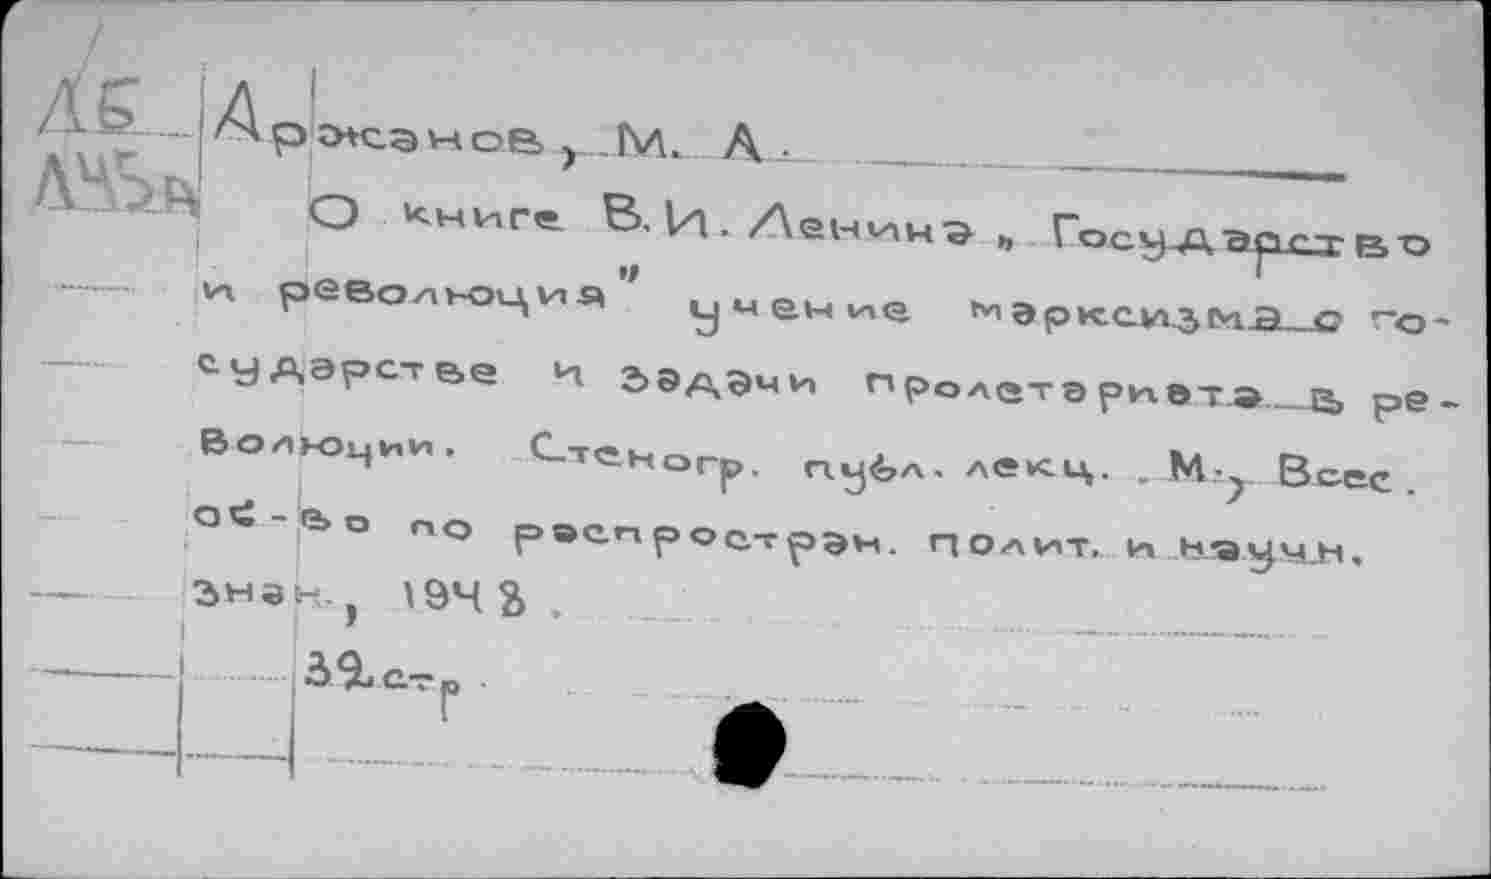 ДБ Аржанов, М. А.
Л45н О книге В. И. Ленина „Государство
и революция" учение марксизма о го-
сударстве и задачи пролетариата в ре-
волюции. Стеногр. публ. лекц. М., Всес.
об-во по распростран. полит. и научн.
знан., 1948.
32 стр.